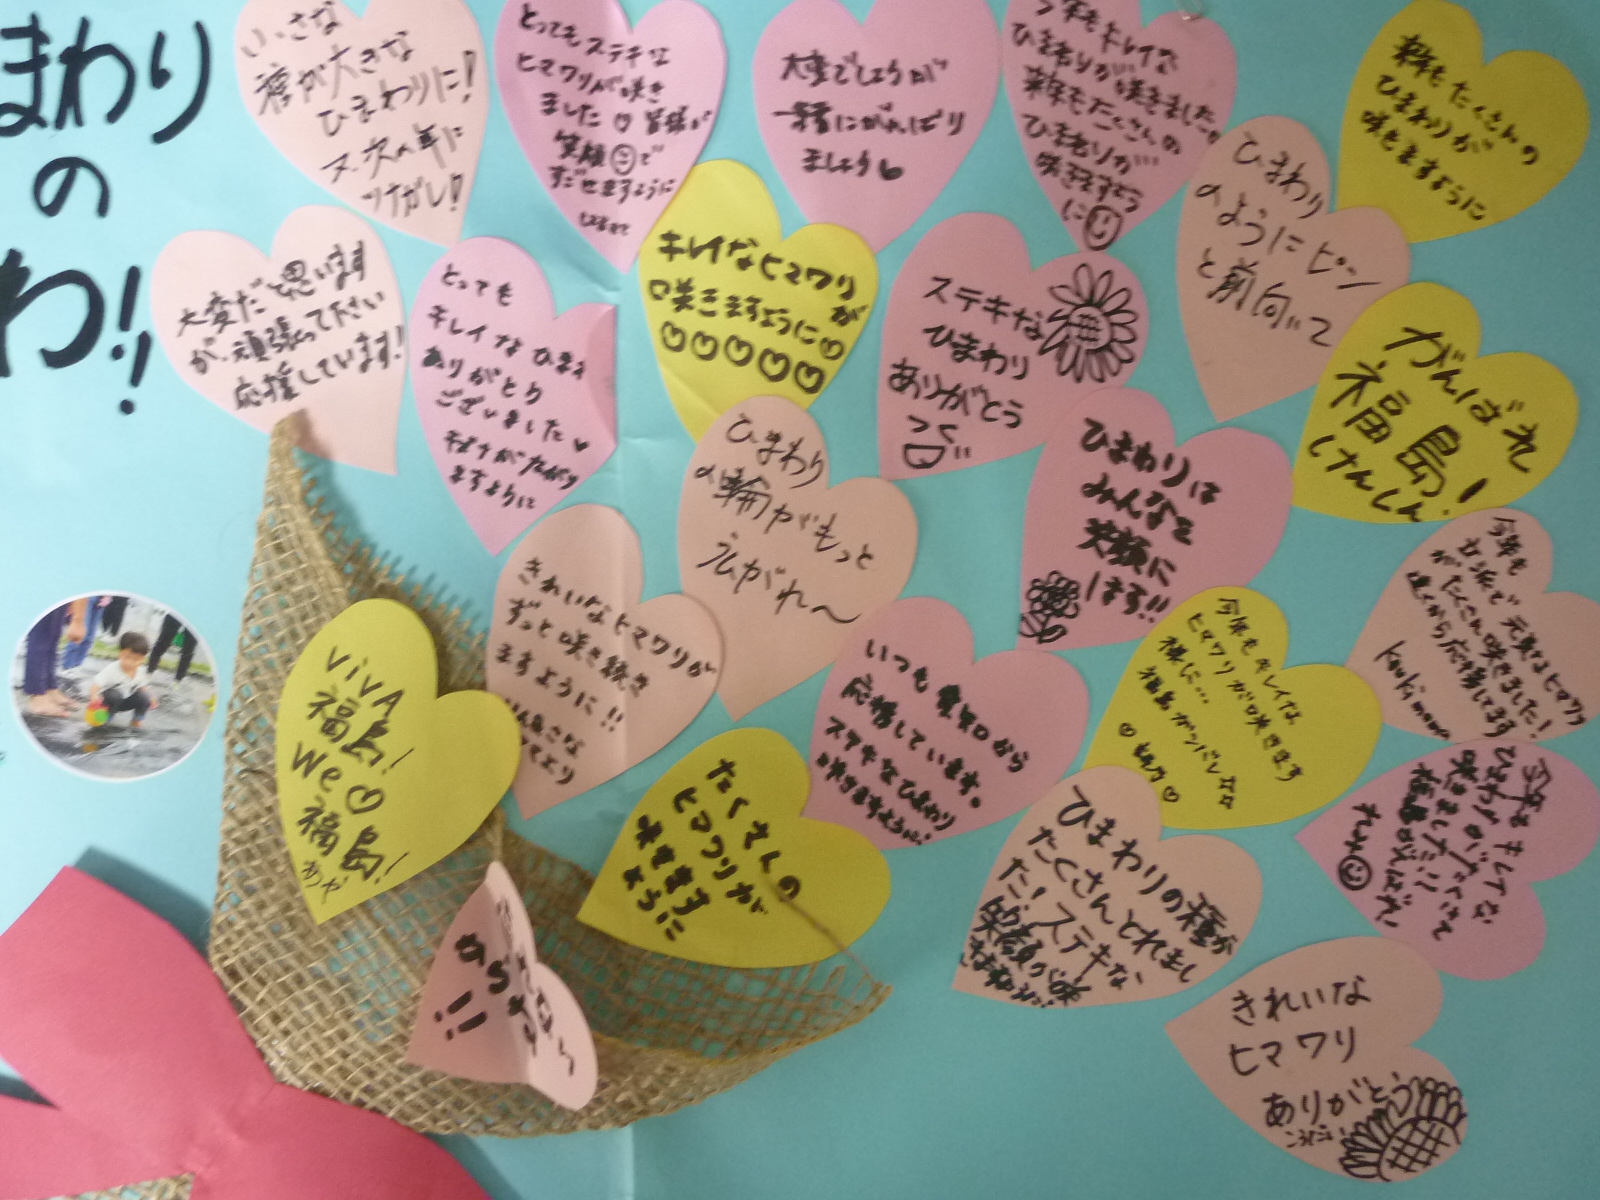 まわり
の
わ!!
小さな
種が大きな
ひまわりに!
又、次の年に
ツナガレ!
とってもステキな
ヒマワリが咲き
ました♡皆様が
笑顔☺で
すごせますように
大変でしょうが
一緒にがんばり
ましょう♥
今年もキレイな
ひまわりが咲きました。
来年もたくさんの
ひまわりが
咲きますよう
に☺
来年もたくさんの
ひまわりが
咲きますように
大変だと思います
が、頑張って下さい
応援しています!
とっても
キレイなひまわ
ありがとう
ございました♥
ますように
キレイなヒマワリが
咲きますように♡
♡♡♡♡♡
ステキな
ひまわり
ありがとう
ひまわり
のようにピン
と前向いて
がんばれ
福島!
けんしん
ひまわり
の輪がもっと
広がれ〜
ひまわりは
みんなを
笑顔に
します!!
きれいなヒマワリが
ずっと咲き続き
ますように!!
今年も
立派で元気なヒマワリ
がたくさん咲きました!
遠くから応援してます
いつも愛知から
応援しています。
ステキなひまわり
咲きますように
今年もキレイな
ヒマワリが咲きます
様に…
福島ガンバレ☆☆
VIVA
福島!
We♡
福島!
あや
たくさんの
ヒマワリが
咲きます
ように
ひまわりの種が
たくさんとれまし
た!ステキな
笑顔が咲
きますように
今年もキレイな
ひまわりがたくさん
咲きました!!
福島がんばれ
きれいな
ヒマワリ
ありがとう